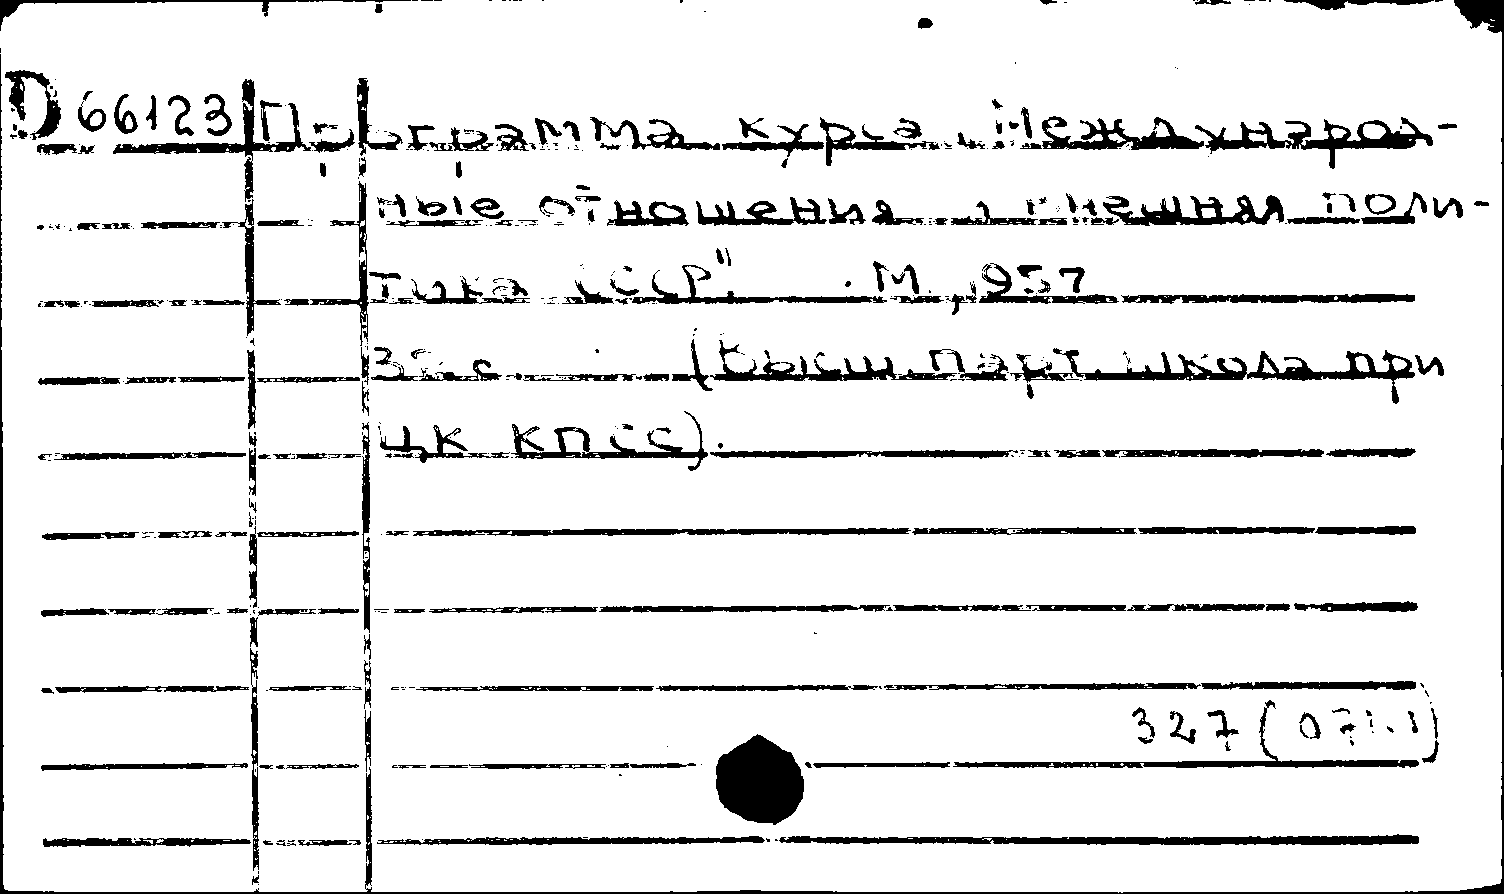 D 66123 Программа курса „Международ-
ные отношения и внешняя поли-
тика СССР". М., 1957
с. (Высш. парт. школа при
ЦК КПСС).
327(071.1)